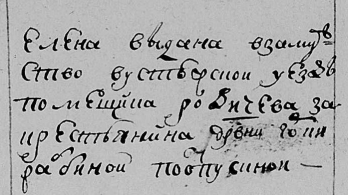 Елена выдана взамуж
ство вустерской уездъ
помещика ро дичева за
крестьянина дрвни гори
рабиной поотпускной —